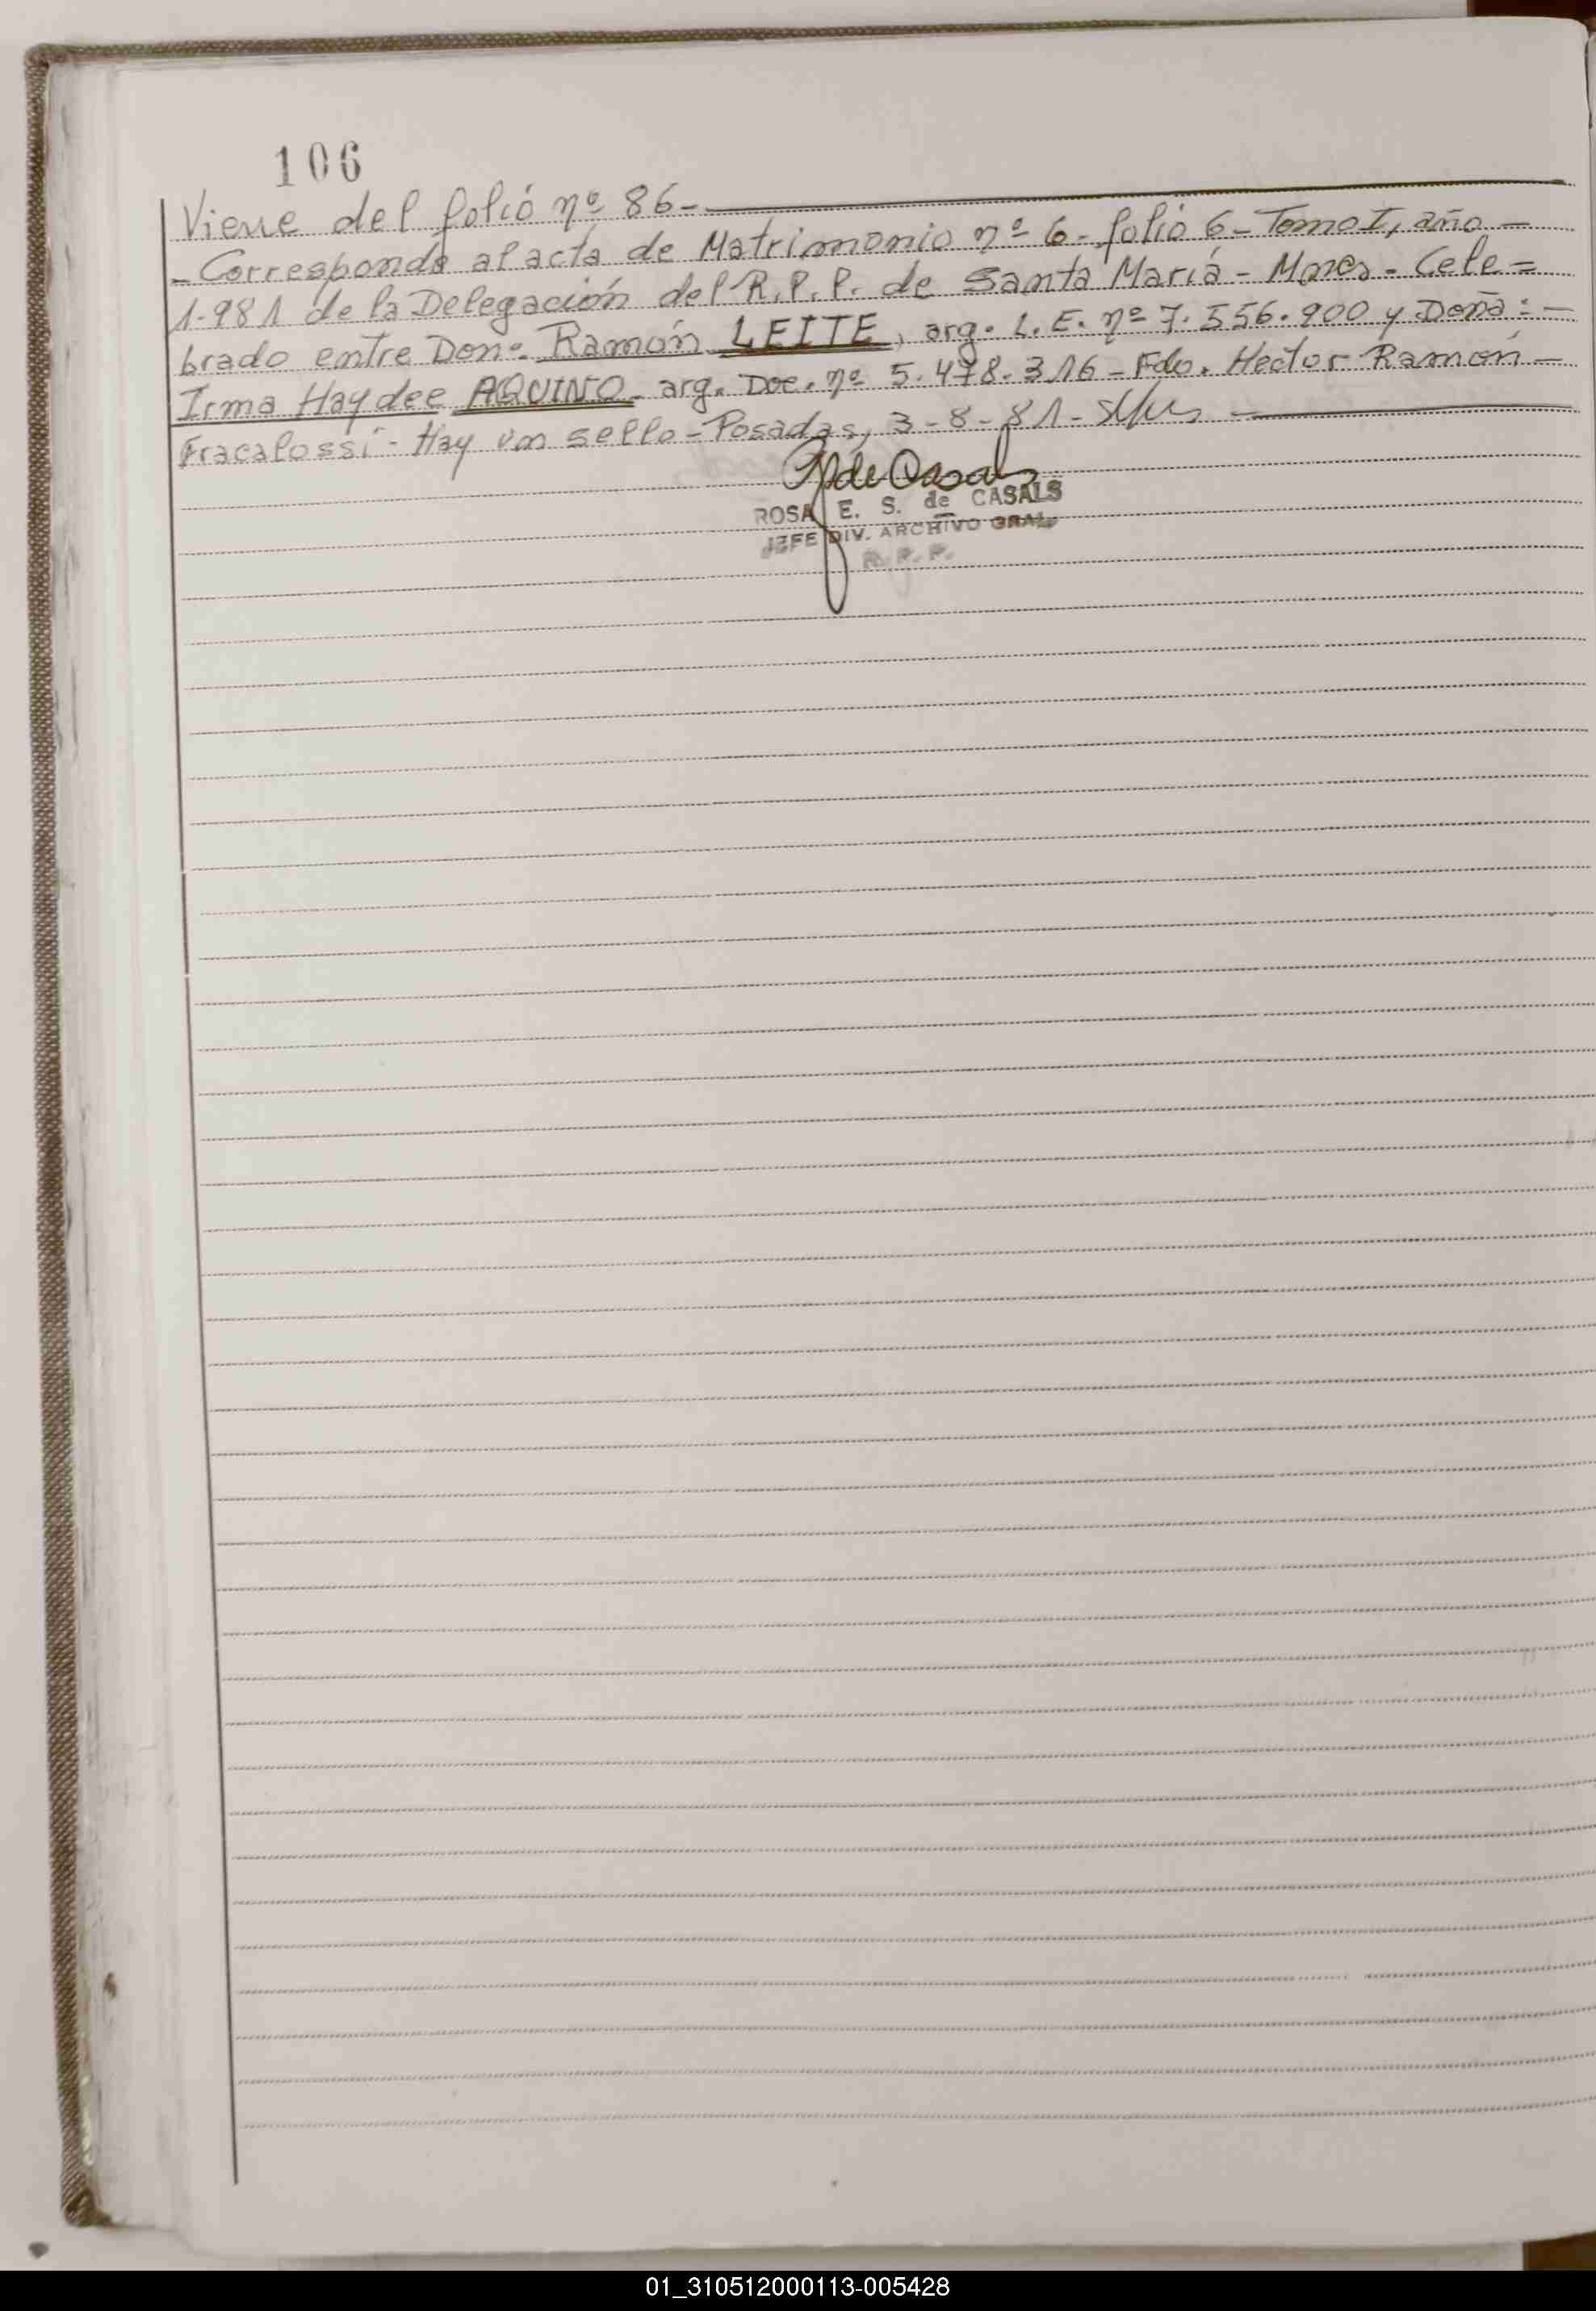 106
Viene del folio nº 86-
- Corresponde al acta de Matrimonio nº 6- folio 6- Tomo I, año -
1.981 de la Delegación del R.P.P. de Santa María - Mnes. Cele=
brado entre Don: Ramón LEITE, arg. L.E. nº 7.556.900 y Doña: -
Irma Haydee AQUINO- arg. Doc. nº 5.478.316- Fdo. Hector Ramón -
Fracalossi - Hay un sello - Posadas, 3-8-81-
ROSA E. S. de CASALS
JEFE DIV. ARCHIVO GRAL.
R.P.P.
01_310512000113-005428